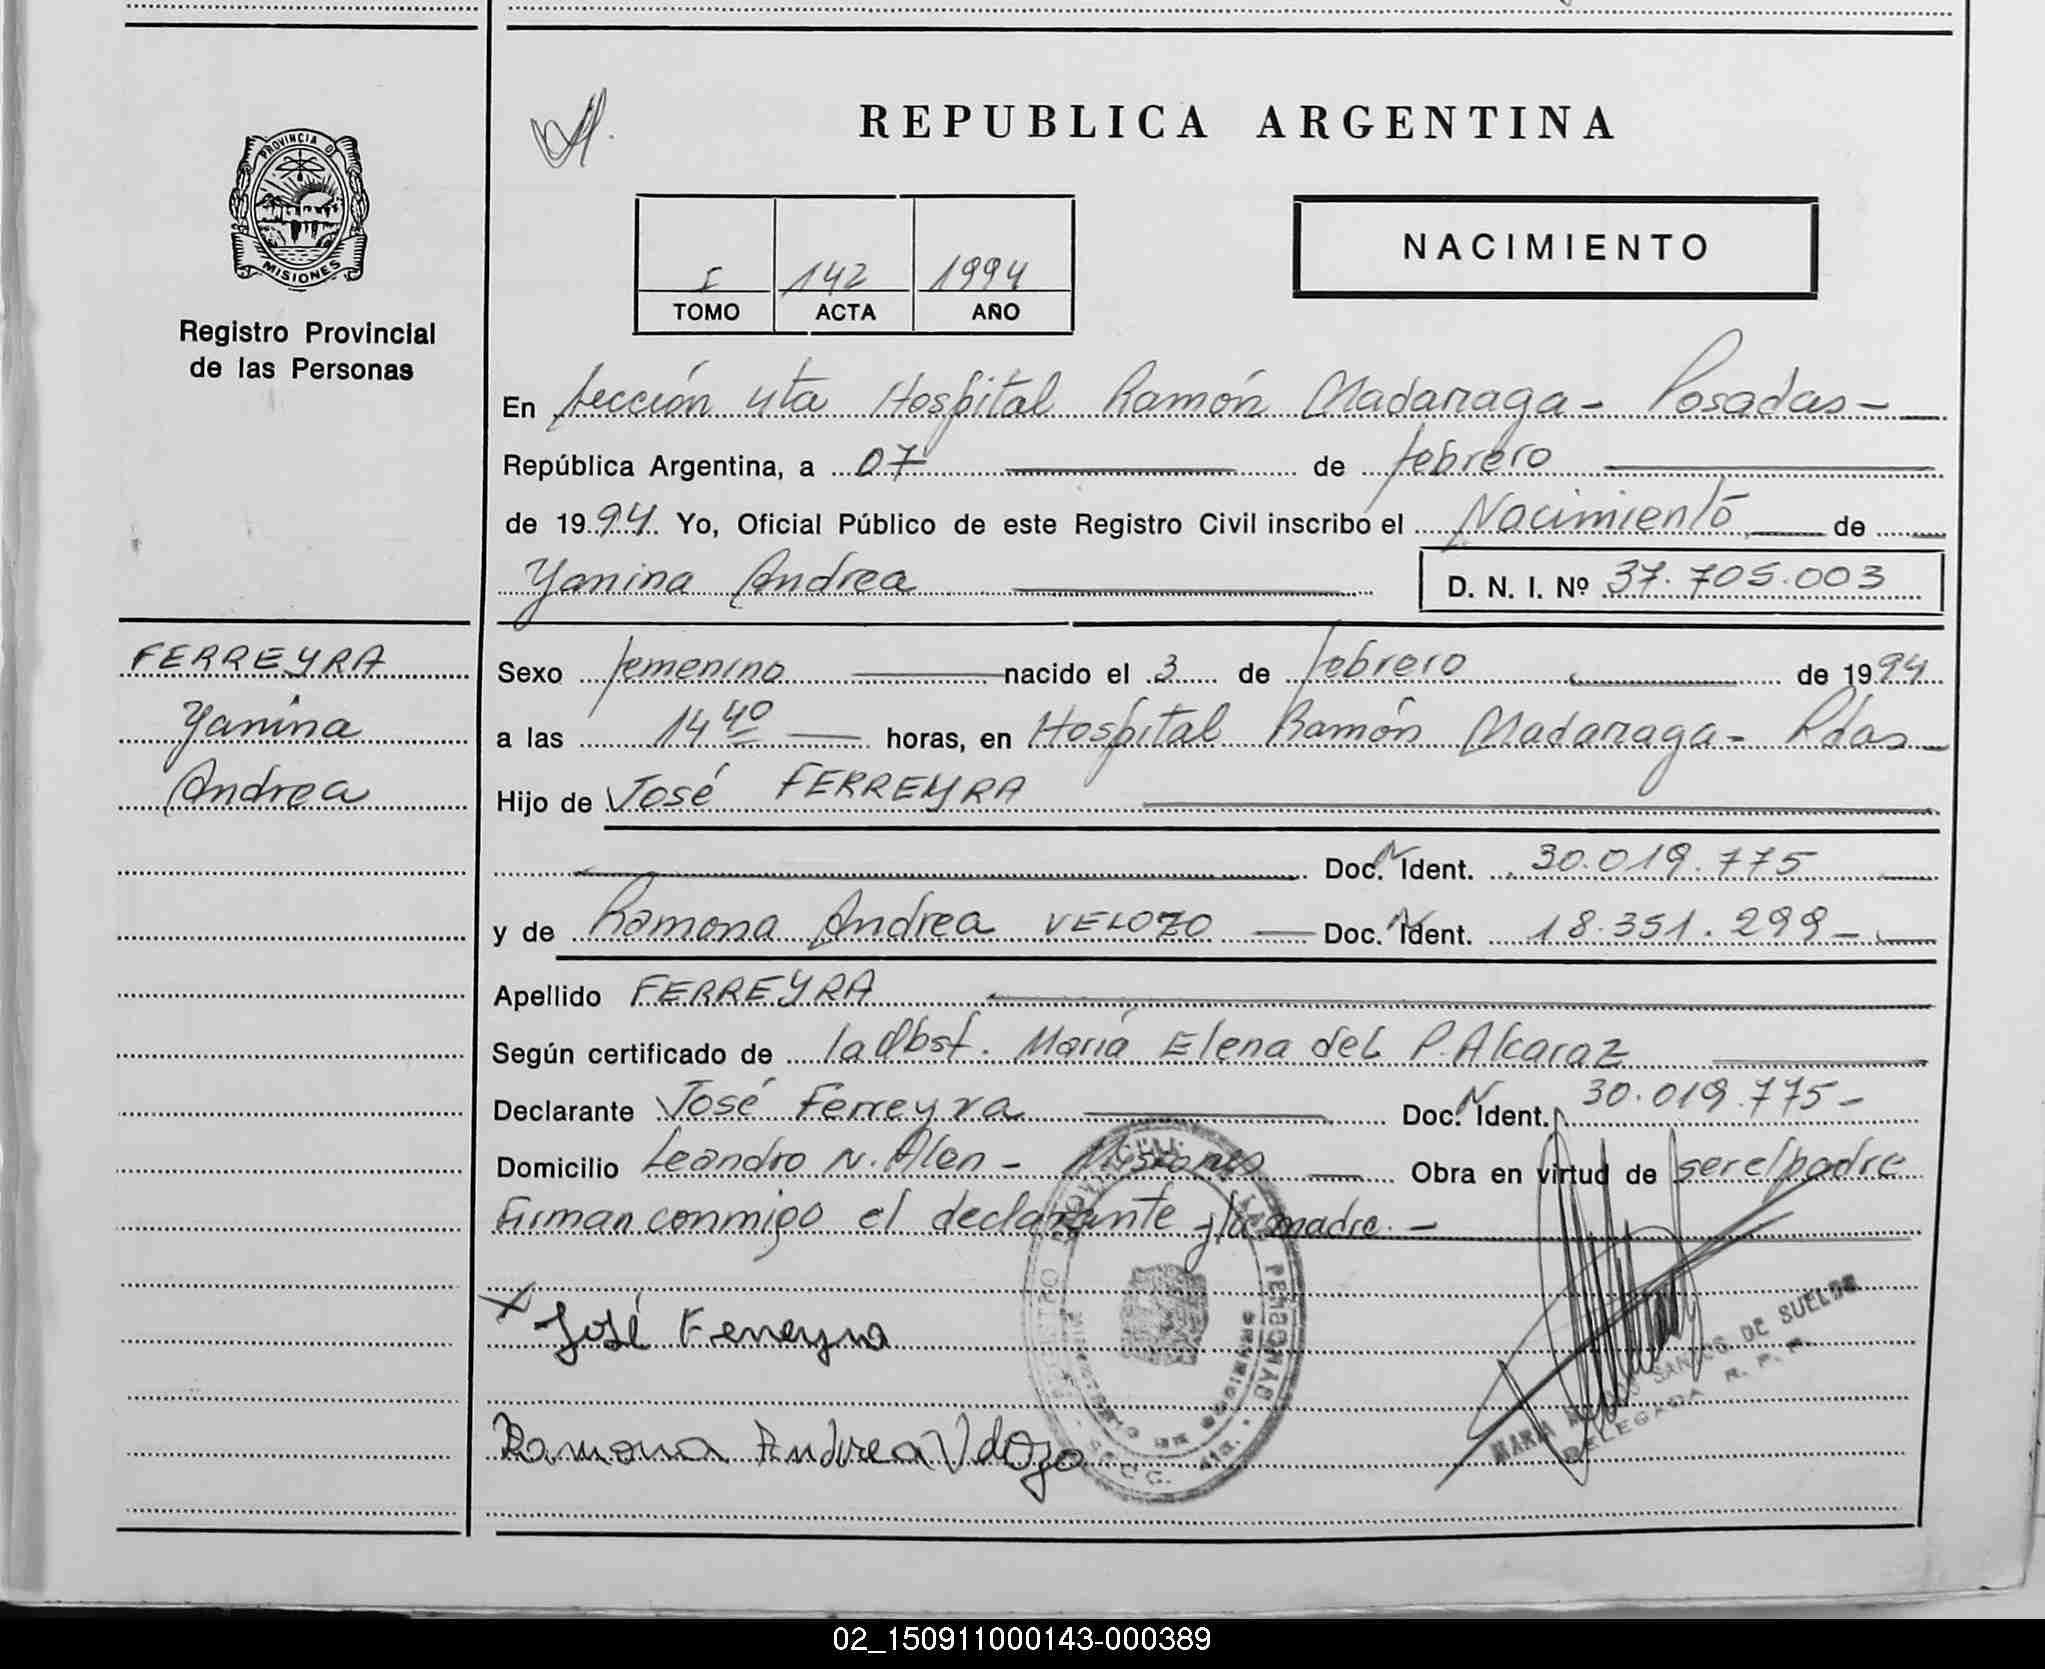 REPUBLICA ARGENTINA
PROVINCIA DE
MISIONES
Registro Provincial
de las Personas
I 142 1994
TOMO ACTA AÑO
NACIMIENTO
En sección 4ta Hospital Ramón Madariaga - Posadas -
República Argentina, a 07 de febrero
de 1994 Yo, Oficial Público de este Registro Civil inscribo el Nacimiento de
Yanina Andrea D. N. I. Nº 37.705.003
FERREYRA
Yanina
Andrea
Sexo femenino nacido el 3 de febrero de 1994
a las 14 40 horas, en Hospital Ramón Madariaga - Pdas -
Hijo de José FERREYRA
Doc. N Ident. 30.019.775
y de Ramona Andrea VELOZO Doc. N Ident. 18.351.299 -
Apellido FERREYRA
Según certificado de la Obst. María Elena del P. Alcaraz
Declarante José Ferreyra Doc. N Ident. 30.019.775 -
Domicilio Leandro N. Alen - Misiones Obra en virtud de ser el padre
Firman conmigo el declarante y la madre. -
José Ferreyra
Ramona Andrea Velozo
MARIA SANTOS DE SUELDO
DELEGADA R. P. P.
02_150911000143-000389